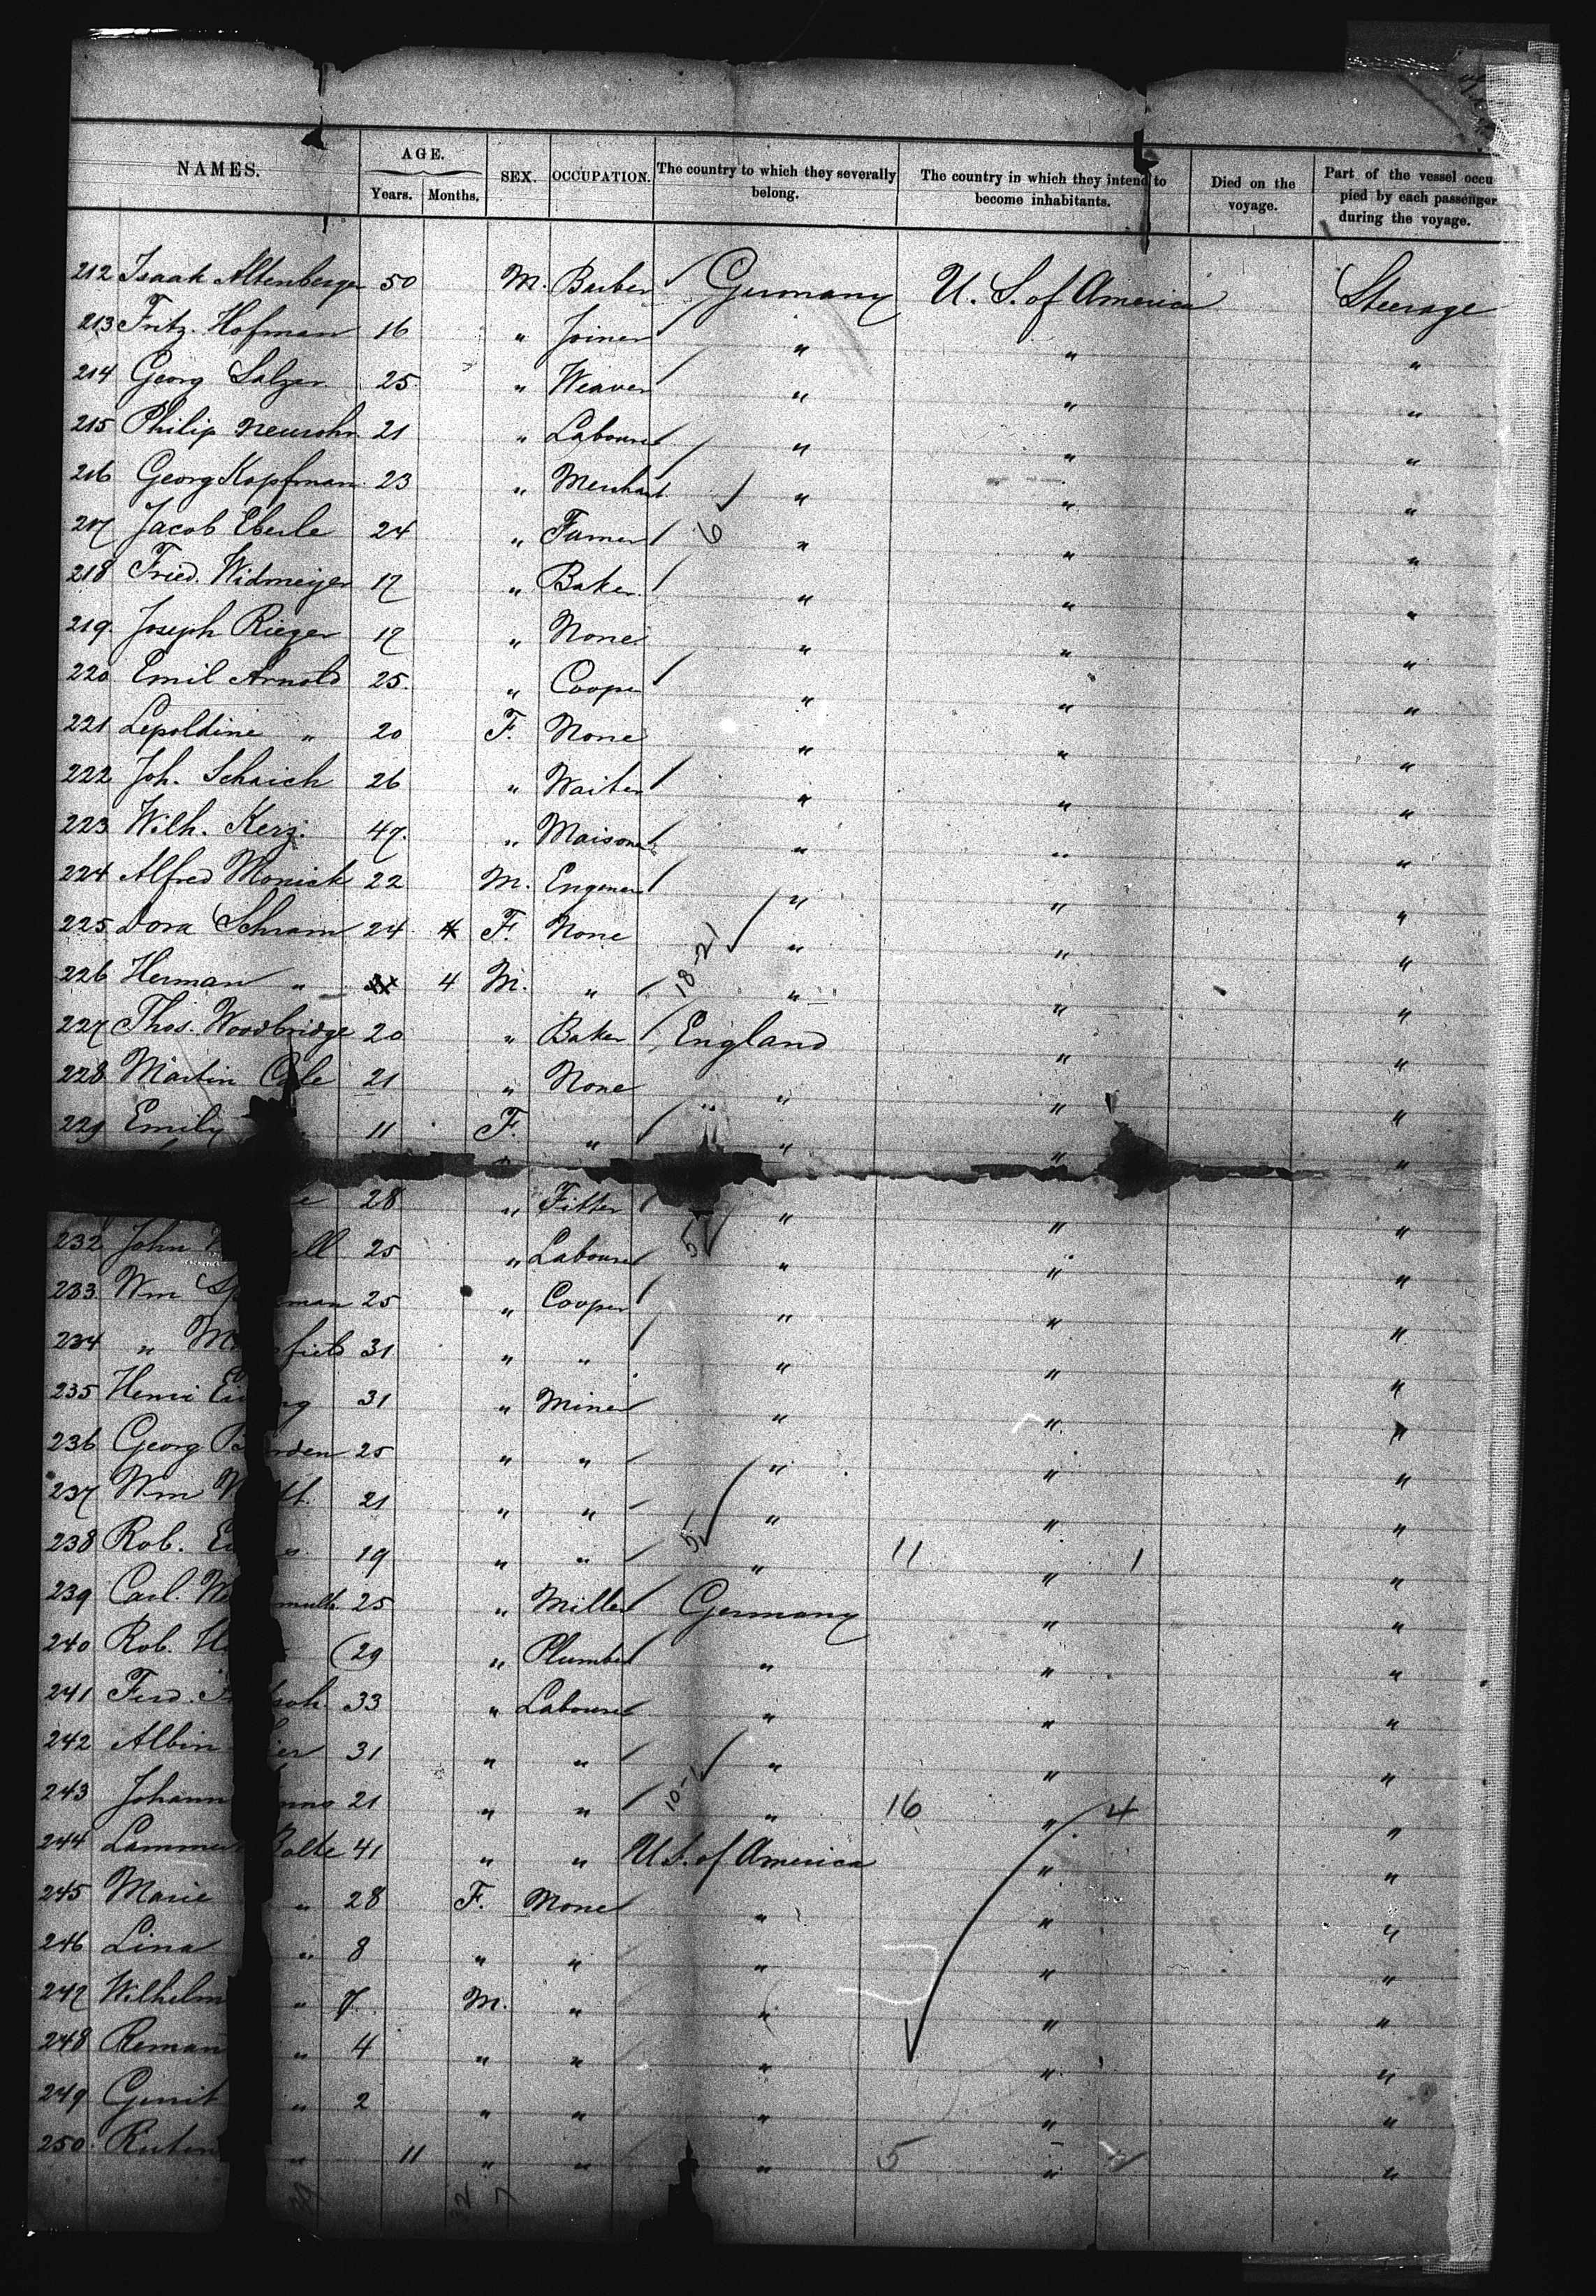 NAMES. AGE. Years. Months. SEX. OCCUPATION. The country to which they severally belong. The country in which they intend to become inhabitants. Died on the voyage. Part of the vessel occupied by each passenger during the voyage.
212 Isaak Altenberger 50 M. Barber Germany U. S. of America Steerage
213 Fritz Hofman 16 " Joiner " " "
214 Georg Salzer 25 " Weaver " " "
215 Philip Neurohr 21 " Labourer " " "
216 Georg Kopfman 23 " Merchant " " "
217 Jacob Eberle 24 " Farmer 6 " " "
218 Fried. Widmeijer 17 " Baker " " "
219 Joseph Rieger 17 " None " " "
220 Emil Arnold 25 " Cooper " " "
221 Lepoldine " 20 F. None " " "
222 Joh. Schaich 26 " Waiter " " "
223 Wilh. Kerz. 47. " Maisoner " " "
224 Alfred Monick 22 M. Engeneer " " "
225 Dora Schram 24 F. None " " "
226 Herman " 4 M. " 18-21 " " "
227 Thos. Woodbridge 20 " Baker England " "
228 Martin 21 " None " " "
229 Emily 11 F. " " " "
28 " Fitter " " "
232 John ell 25 " Labourer 5 " " "
233 Wm Sp man 25 " Cooper " " "
234 " M field 31 " " " " "
235 Henri ng 31 " Miner " " "
236 Georg B rden 25 " " " " "
237 Wm W tt. 21 " " " " "
238 Rob. 19 " " 5 " 11 " 1 "
239 Carl. W muth 25 " Miller Germany " "
240 Rob. H 29 " Plumber " " "
241 Ferd. 33 " Labourer " " "
242 Albin ier 31 " " " " "
243 Johann 21 " " 10-1 " 16 " 4 "
244 Lammer Bolte 41 " " U. S. of America " "
245 Marie " 28 F. None " " "
246 Lina " 8 " " " " "
247 Wilhelm " 7. M. " " " "
248 Reman " 4 " " " " "
249 Gerrit " 2 " " " " "
250 " 11 " " " 5 " "